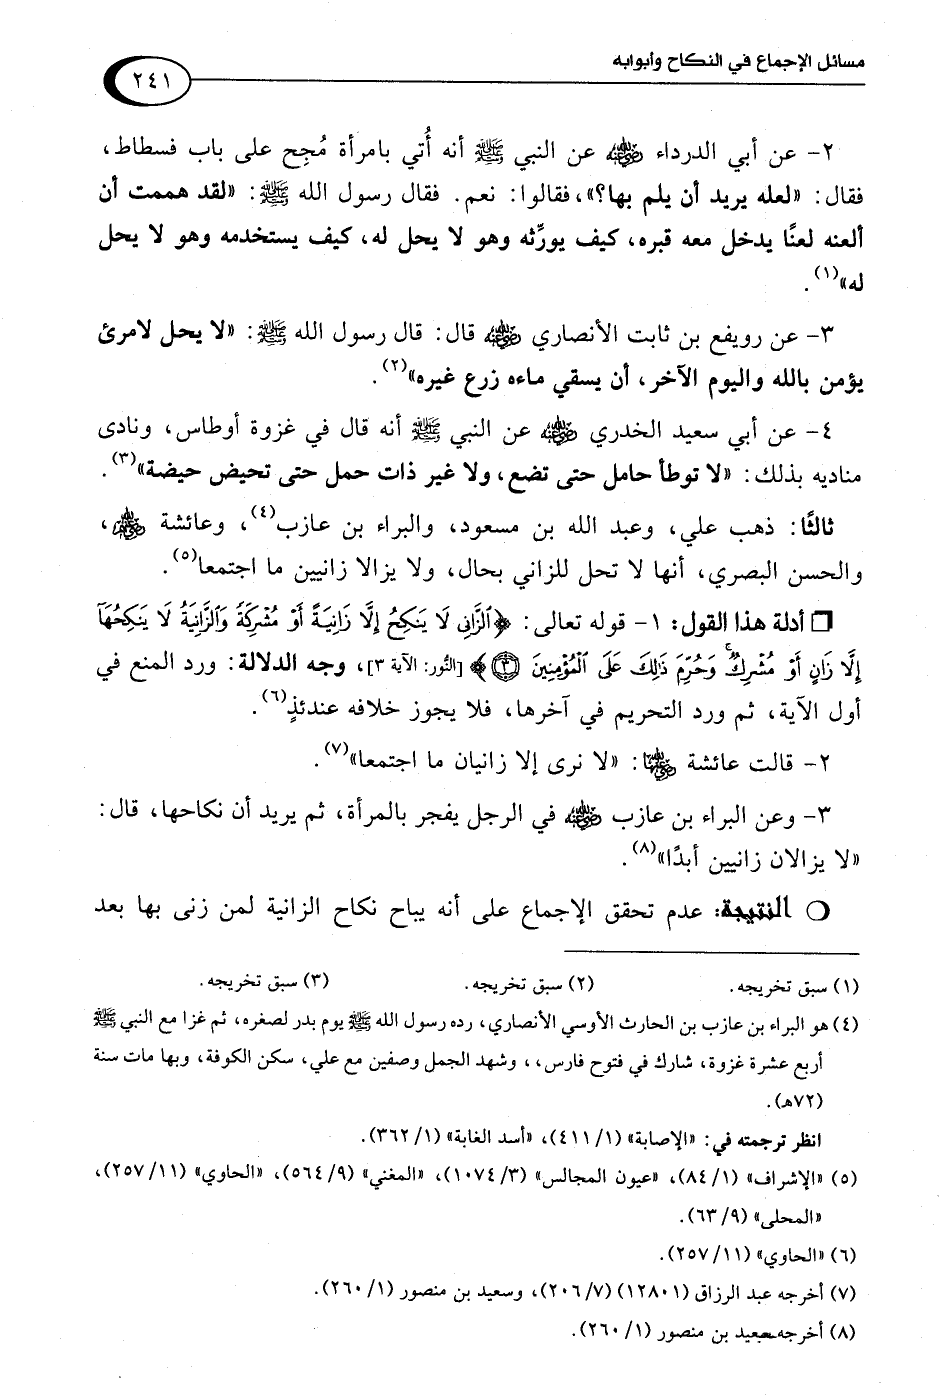 مسائل الإجماع في النكاح وأبوابه
٢٤١
٢- عن أبي الدرداء رضي الله عنه عن النبي ﷺ أنه أُتي بامرأة مُجِح على باب فسطاط،
فقال: «لعله يريد أن يلم بها؟»، فقالوا: نعم. فقال رسول الله ﷺ: «لقد هممت أن
ألعنه لعنًا يدخل معه قبره، كيف يورِّثه وهو لا يحل له، كيف يستخدمه وهو لا يحل
له»(١).
٣- عن رويفع بن ثابت الأنصاري رضي الله عنه قال: قال رسول الله ﷺ: «لا يحل لامرئ
يؤمن بالله واليوم الآخر، أن يسقي ماءه زرع غيره»(٢).
٤- عن أبي سعيد الخدري رضي الله عنه عن النبي ﷺ أنه قال في غزوة أوطاس، ونادى
مناديه بذلك: «لا توطأ حامل حتى تضع، ولا غير ذات حمل حتى تحيض حيضة»(٣).
ثالثًا: ذهب علي، وعبد الله بن مسعود، والبراء بن عازب(٤)، وعائشة رضي الله عنهم،
والحسن البصري، أنها لا تحل للزاني بحال، ولا يزالا زانيين ما اجتمعا(٥).
❒ أدلة هذا القول: ١- قوله تعالى: ﴿ٱلزَّانِى لَا يَنكِحُ إِلَّا زَانِيَةً أَوْ مُشْرِكَةً وَٱلزَّانِيَةُ لَا يَنكِحُهَآ
إِلَّا زَانٍ أَوْ مُشْرِكٌۚ وَحُرِّمَ ذَٰلِكَ عَلَى ٱلْمُؤْمِنِينَ ٣﴾ [النُّور: الآية ٣]، وجه الدلالة: ورد المنع في
أول الآية، ثم ورد التحريم في آخرها، فلا يجوز خلافه عندئذٍ(٦).
٢- قالت عائشة رضي الله عنها: «لا نرى إلا زانيان ما اجتمعا»(٧).
٣- وعن البراء بن عازب رضي الله عنه في الرجل يفجر بالمرأة، ثم يريد أن نكاحها، قال:
«لا يزالان زانيين أبدًا»(٨).
❍ النتيجة: عدم تحقق الإجماع على أنه يباح نكاح الزانية لمن زنى بها بعد
(١) سبق تخريجه. (٢) سبق تخريجه. (٣) سبق تخريجه.
(٤) هو البراء بن عازب بن الحارث الأوسي الأنصاري، رده رسول الله ﷺ يوم بدر لصغره، ثم غزا مع النبي ﷺ
أربع عشرة غزوة، شارك في فتوح فارس،، وشهد الجمل وصفين مع علي، سكن الكوفة، وبها مات سنة
(٧٢هـ).
انظر ترجمته في: «الإصابة» (١/ ٤١١)، «أسد الغابة» (١/ ٣٦٢).
(٥) «الإشراف» (١/ ٨٤)، «عيون المجالس» (٣/ ١٠٧٤)، «المغني» (٩/ ٥٦٤)، «الحاوي» (١١/ ٢٥٧)،
«المحلى» (٩/ ٦٣).
(٦) «الحاوي» (١١/ ٢٥٧).
(٧) أخرجه عبد الرزاق (١٢٨٠١) (٧/ ٢٠٦)، وسعيد بن منصور (١/ ٢٦٠).
(٨) أخرجه سعيد بن منصور (١/ ٢٦٠).